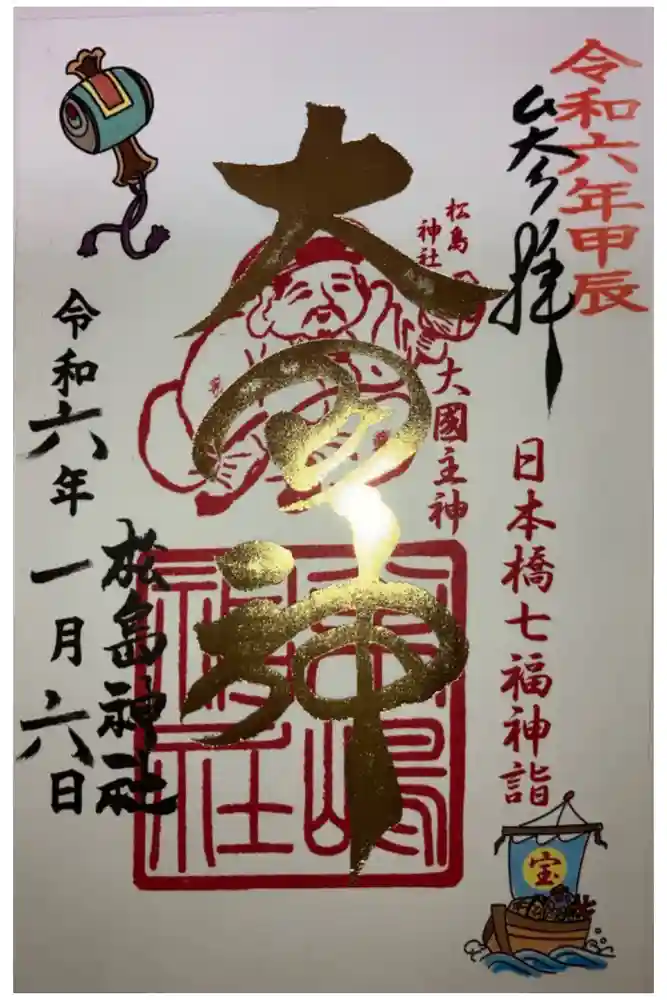 令和六年甲辰
参拝
日本橋七福神詣
宝
松島
神社
大國主神
大国神
松嶋
神社
松島神社
令和六年一月六日